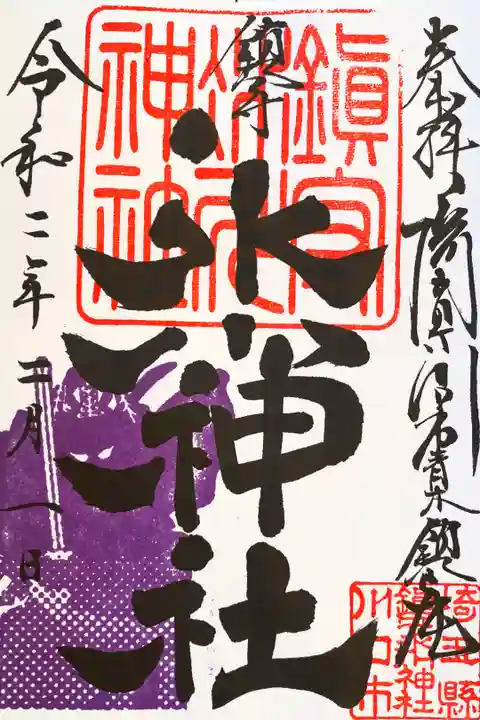 奉拝 埼玉縣川口市青木鎮座
鎮守
氷川神社
鎮守
氷川
神社
令和二年二月一日
埼玉縣
鎮守氷川神社
川口市